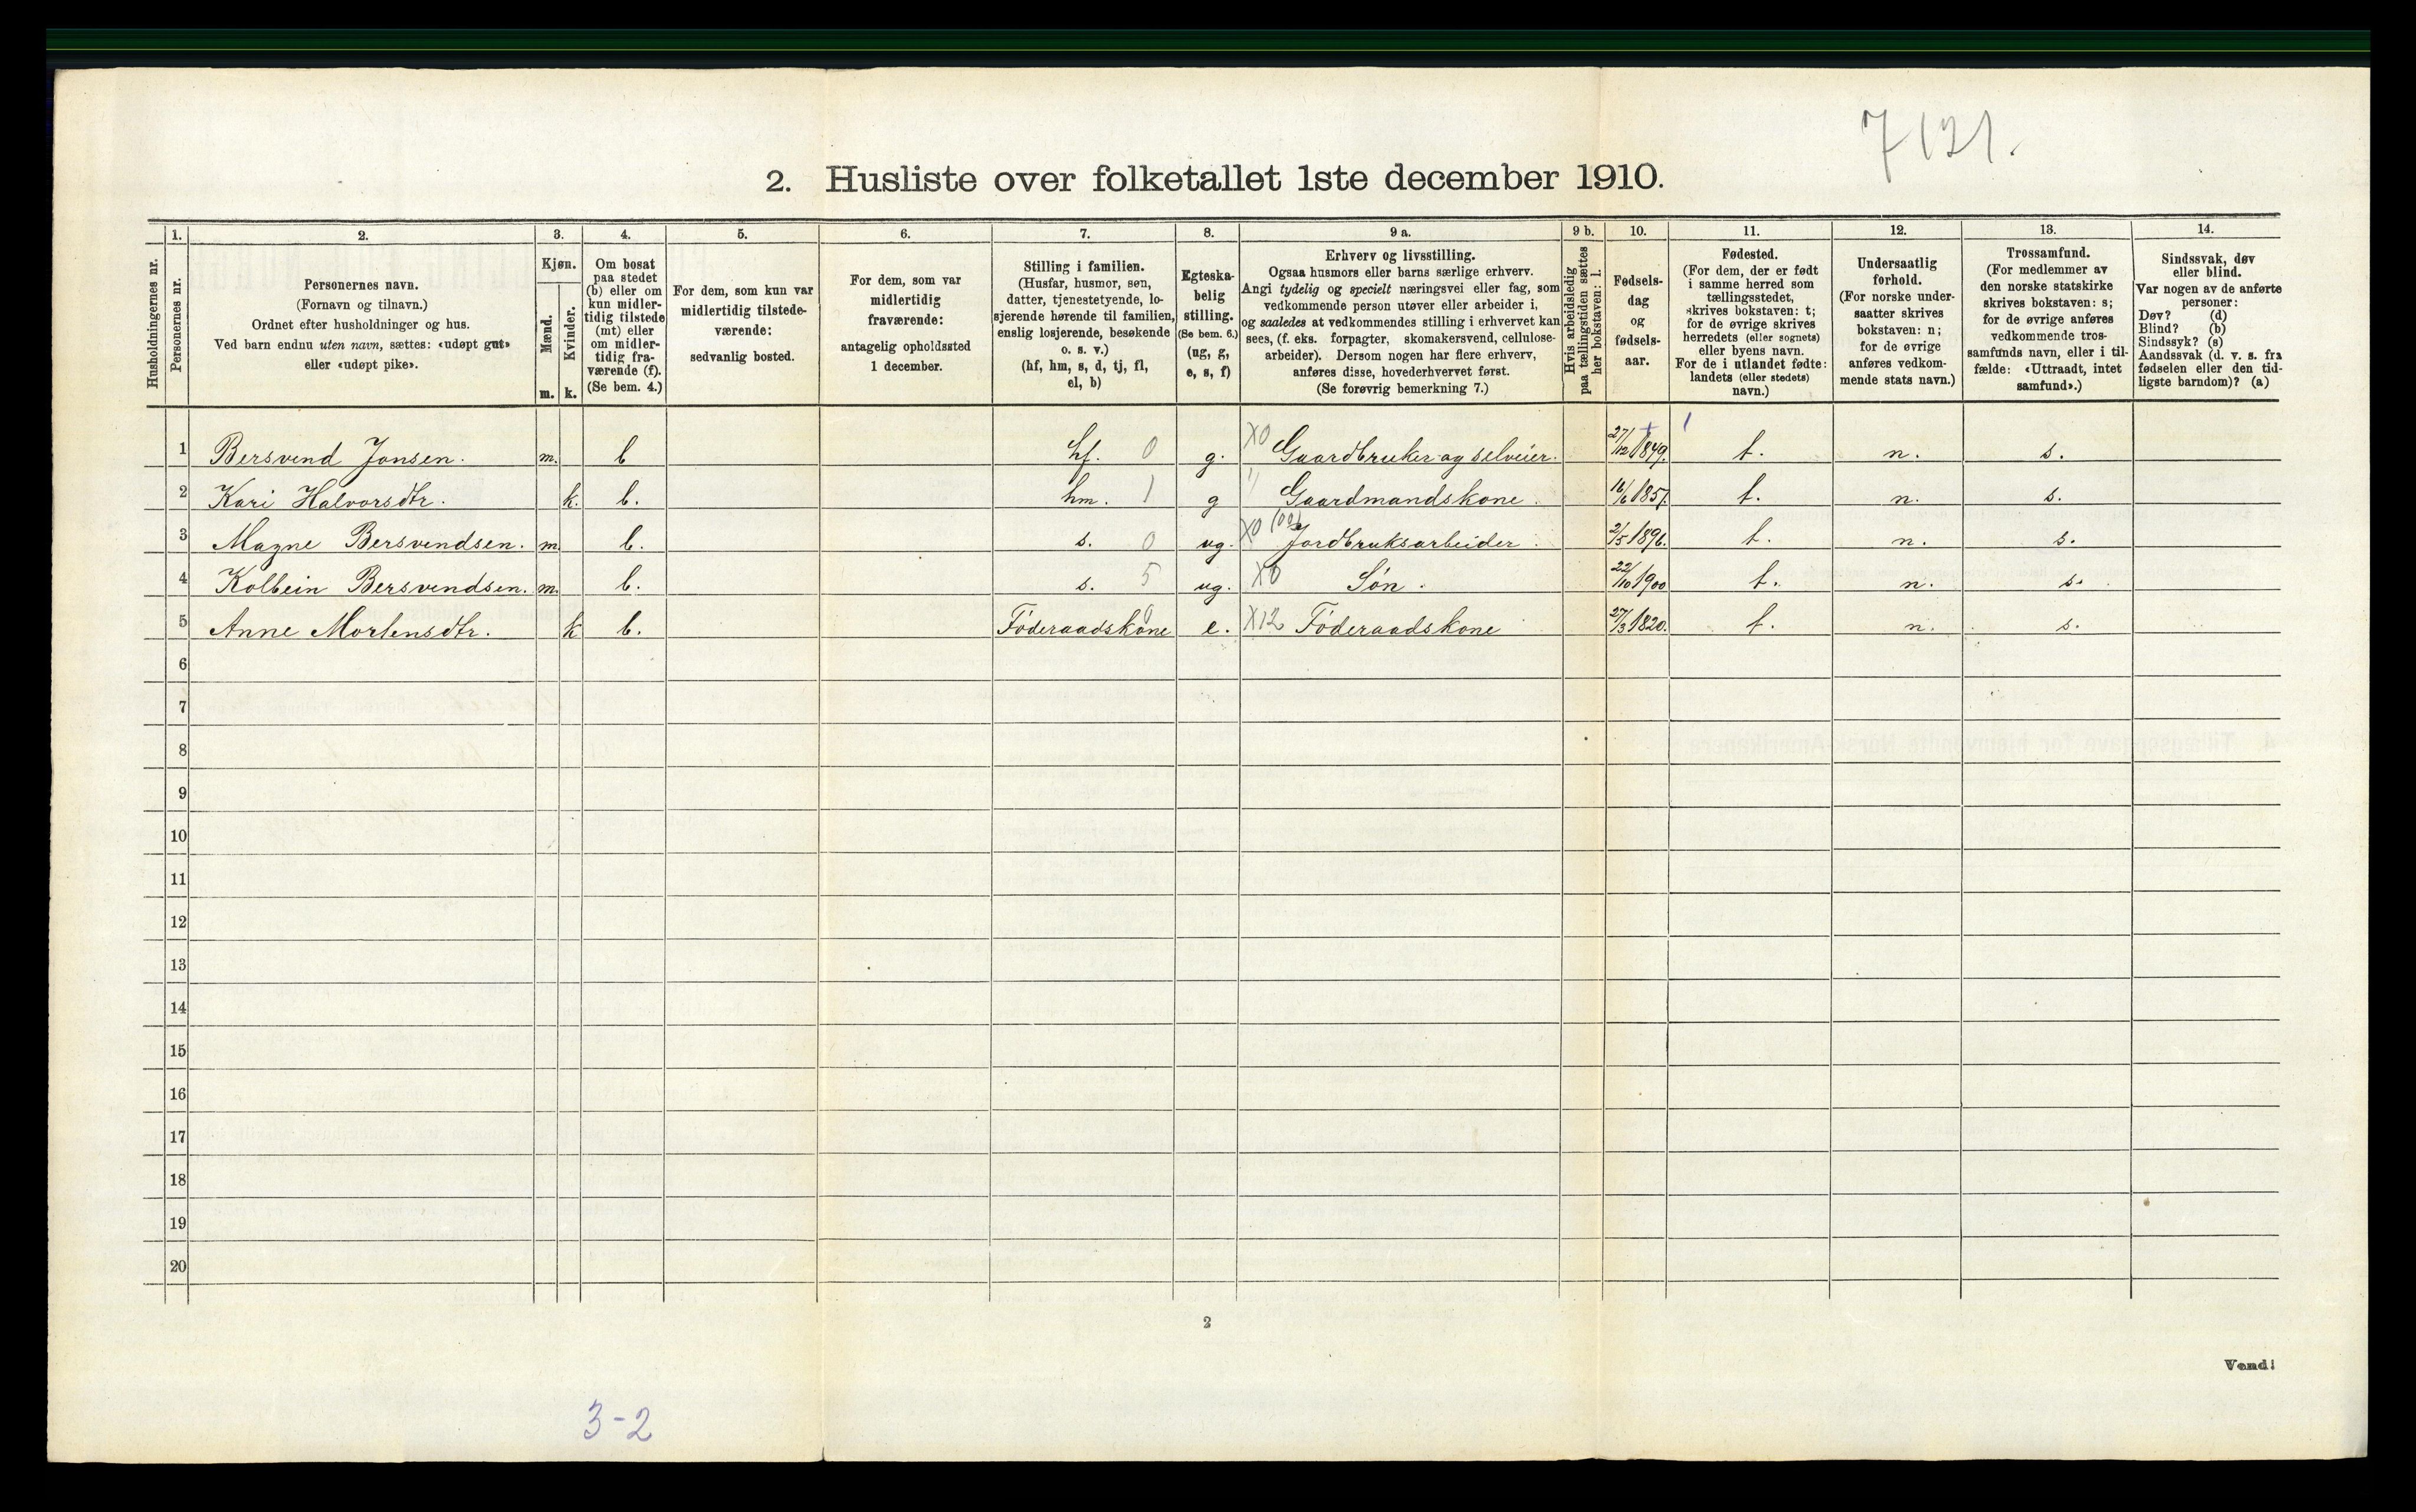 7131.
2. Husliste over folketallet 1ste december 1910.
1. 2. 3. 4. 5. 6. 7. 8. 9 a. 9 b. 10. 11. 12. 13. 14.
Husholdningernes nr.
Personernes nr.
Personernes navn.
(Fornavn og tilnavn.)
Ordnet efter husholdninger og hus.
Ved barn endnu uten navn, sættes: «udøpt gut»
eller «udøpt pike».
Kjøn.
Mænd.
Kvinder.
m. k.
Om bosat
paa stedet
(b) eller om
kun midler-
tidig tilstede
(mt) eller
om midler-
tidig fra-
værende (f).
(Se bem. 4.)
For dem, som kun var
midlertidig tilstede-
værende:
sedvanlig bosted.
For dem, som var
midlertidig
fraværende:
antagelig opholdssted
1 december.
Stilling i familien.
(Husfar, husmor, søn,
datter, tjenestetyende, lo-
sjerende hørende til familien,
enslig losjerende, besøkende
o. s. v.)
(hf, hm, s, d, tj, fl,
el, b)
Egteska-
belig
stilling.
(Se bem. 6.)
(ug, g,
e, s, f)
Erhverv og livsstilling.
Ogsaa husmors eller barns særlige erhverv.
Angi tydelig og specielt næringsvei eller fag, som
vedkommende person utøver eller arbeider i,
og saaledes at vedkommendes stilling i erhvervet kan
sees, (f. eks. forpagter, skomakersvend, cellulose-
arbeider). Dersom nogen har flere erhverv,
anføres disse, hovederhvervet først.
(Se forøvrig bemerkning 7.)
Hvis arbeidsledig
paa tællingstiden sættes
her bokstaven: l.
Fødsels-
dag
og
fødsels-
aar.
Fødested.
(For dem, der er født
i samme herred som
tællingsstedet,
skrives bokstaven: t;
for de øvrige skrives
herredets (eller sognets)
eller byens navn.
For de i utlandet fødte:
landets (eller stedets)
navn.)
Undersaatlig
forhold.
(For norske under-
saatter skrives
bokstaven: n;
for de øvrige
anføres vedkom-
mende stats navn.)
Trossamfund.
(For medlemmer av
den norske statskirke
skrives bokstaven: s;
for de øvrige anføres
vedkommende tros-
samfunds navn, eller i til-
fælde: «Uttraadt, intet
samfund».)
Sindssvak, døv
eller blind.
Var nogen av de anførte
personer:
Døv? (d)
Blind? (b)
Sindssyk? (s)
Aandssvak (d. v. s. fra
fødselen eller den tid-
ligste barndom)? (a)
1 Bersvend Jonsen. m. b hf. 0 g. X0 Gaardbruker og selveier. 27/12 1849. t. n. s.
2 Kari Halvorsdtr. k. b. hm. 1 g " Gaardmandskone. 16/6 1857. t. n. s.
3 Magne Bersvendsen. m. b. s. 0 ug. X0 Jordbruksarbeider. 2/5 1896. t. n. s.
4 Kolbein Bersvendsen. m. b. s. 5 ug. X0 Søn. 22/10 1900 t. n. s.
5 Anne Mortensdtr. k b. Føderaadskone 0 e. X12 Føderaadskone 27/3 1820. t. n. s.
6
7
8
9
10
11
12
13
14
15
16
17
18
19
20
2
Vend!
3-2